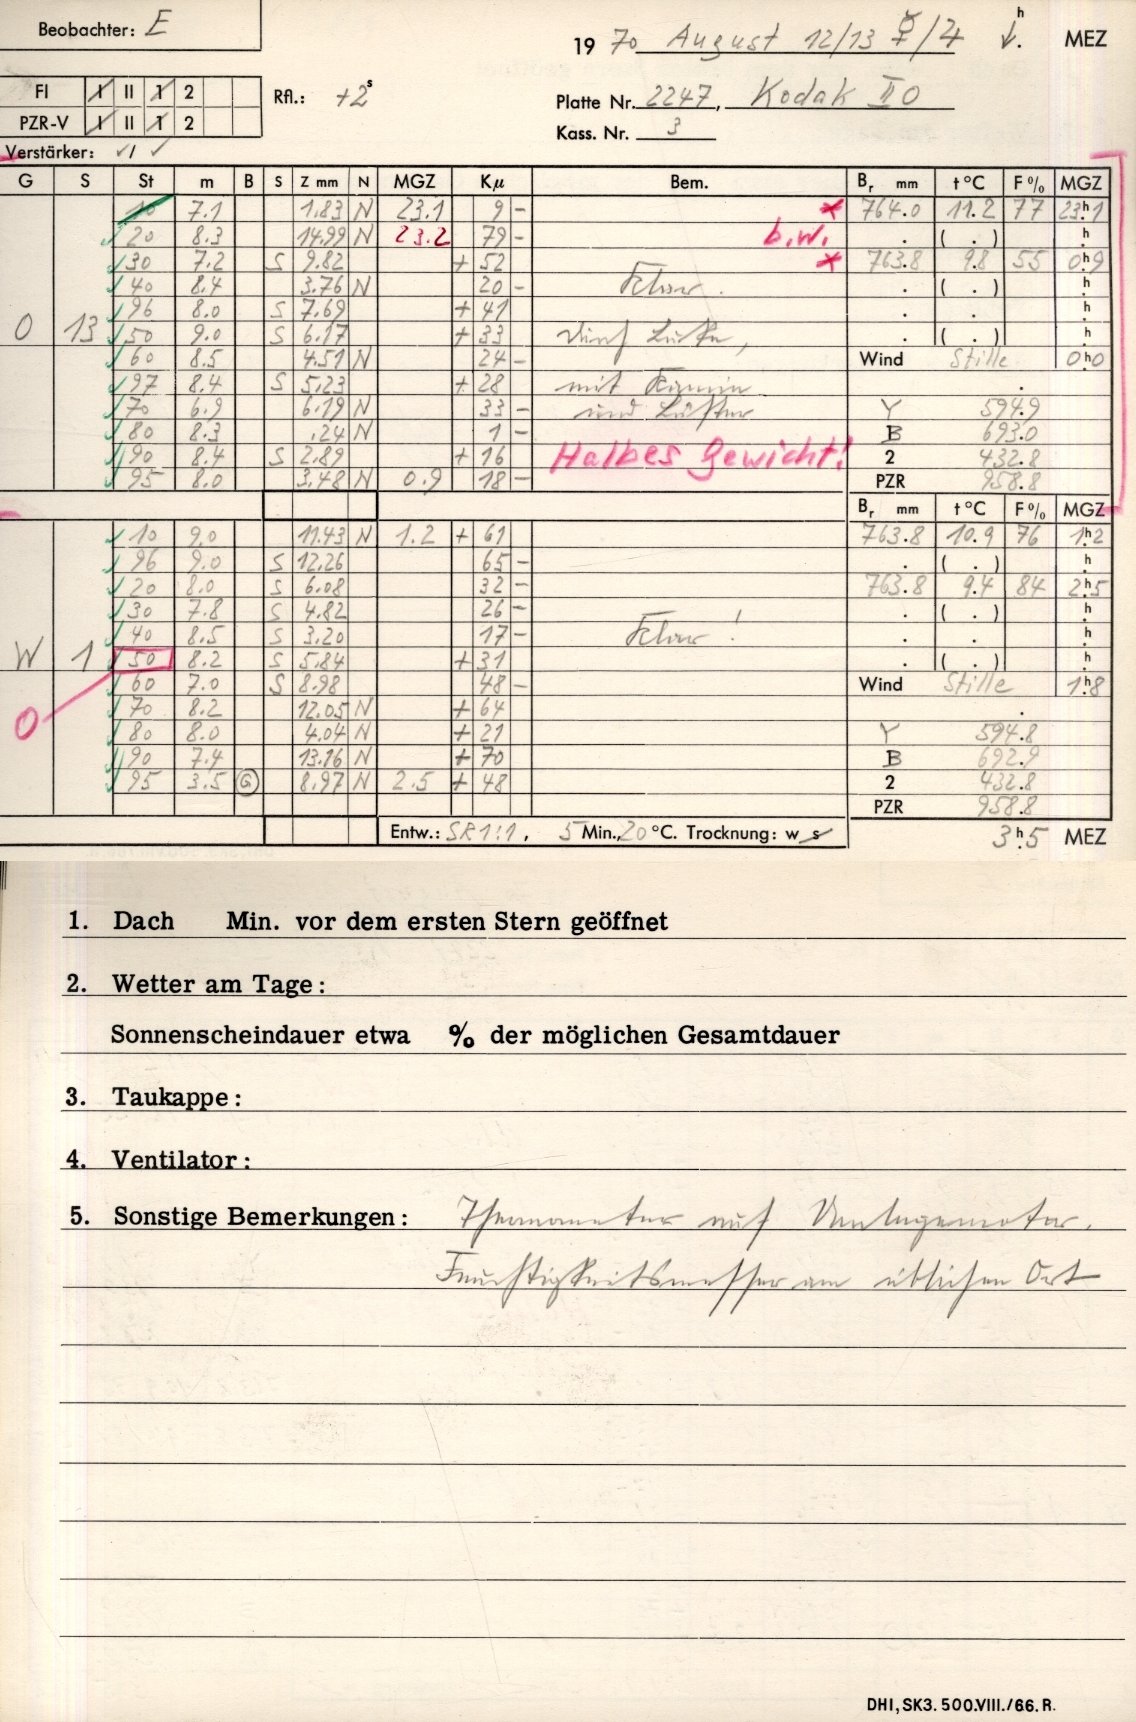 Beobachter: E
1970 August 12/13 ☿/♃ h MEZ
FI I II 1 2
Rfl.: +2s
Platte Nr. 2247, Kodak II O
PZR-V I II 1 2
Kass. Nr. 3
Verstärker: ✓/ ✓
G S St m B S Z mm N MGZ Kμ Bem. Br mm t°C F% MGZ
10 7.1 1.83 N 23.1 9 - * 764.0 11.2 77 23h1
20 8.3 14.99 N 23.2 79 - b.w. . ( . ) h
30 7.2 S 9.82 + 52 * 763.8 9.8 55 0h9
40 8.4 3.76 N 20 - Klar. . ( . ) h
96 8.0 S 7.69 + 41 . . h
O 13 50 9.0 S 6.17 + 33 durch Luke, . ( . ) h
60 8.5 4.51 N 24 - Wind Stille 0h0
97 8.4 S 5.23 + 28 mit Kamin
70 6.9 6.19 N 33 - und Lüfter Y 594.9
80 8.3 .24 N 1 - B 693.0
90 8.4 S 2.89 + 16 Halbes Gewicht! 2 432.8
95 8.0 3.48 N 0.9 18 - PZR 958.8
Br mm t°C F% MGZ
10 9.0 11.43 N 1.2 + 61 763.8 10.9 76 1h2
96 9.0 S 12.26 65 - . ( . ) h
20 8.0 S 6.08 32 - 763.8 9.4 84 2h5
30 7.8 S 4.82 26 - . ( . ) h
40 8.5 S 3.20 17 - Klar! . . h
W 1 50 8.2 S 5.84 + 31 . ( . ) h
60 7.0 S 8.98 48 - Wind Stille 1h8
O 70 8.2 12.05 N + 64
80 8.0 4.04 N + 21 Y 594.8
90 7.4 13.16 N + 70 B 692.9
95 3.5 G 8.97 N 2.5 + 48 2 432.8
PZR 958.8
Entw.: SR 1:1, 5 Min., 20 °C. Trocknung: w s 3h5 MEZ
1. Dach Min. vor dem ersten Stern geöffnet
2. Wetter am Tage:
Sonnenscheindauer etwa % der möglichen Gesamtdauer
3. Taukappe:
4. Ventilator:
5. Sonstige Bemerkungen: Thermometer auf Umlegemotor.
Feuchtigkeitsmesser am üblichen Ort
DHI, SK3. 500.VIII./66. R.